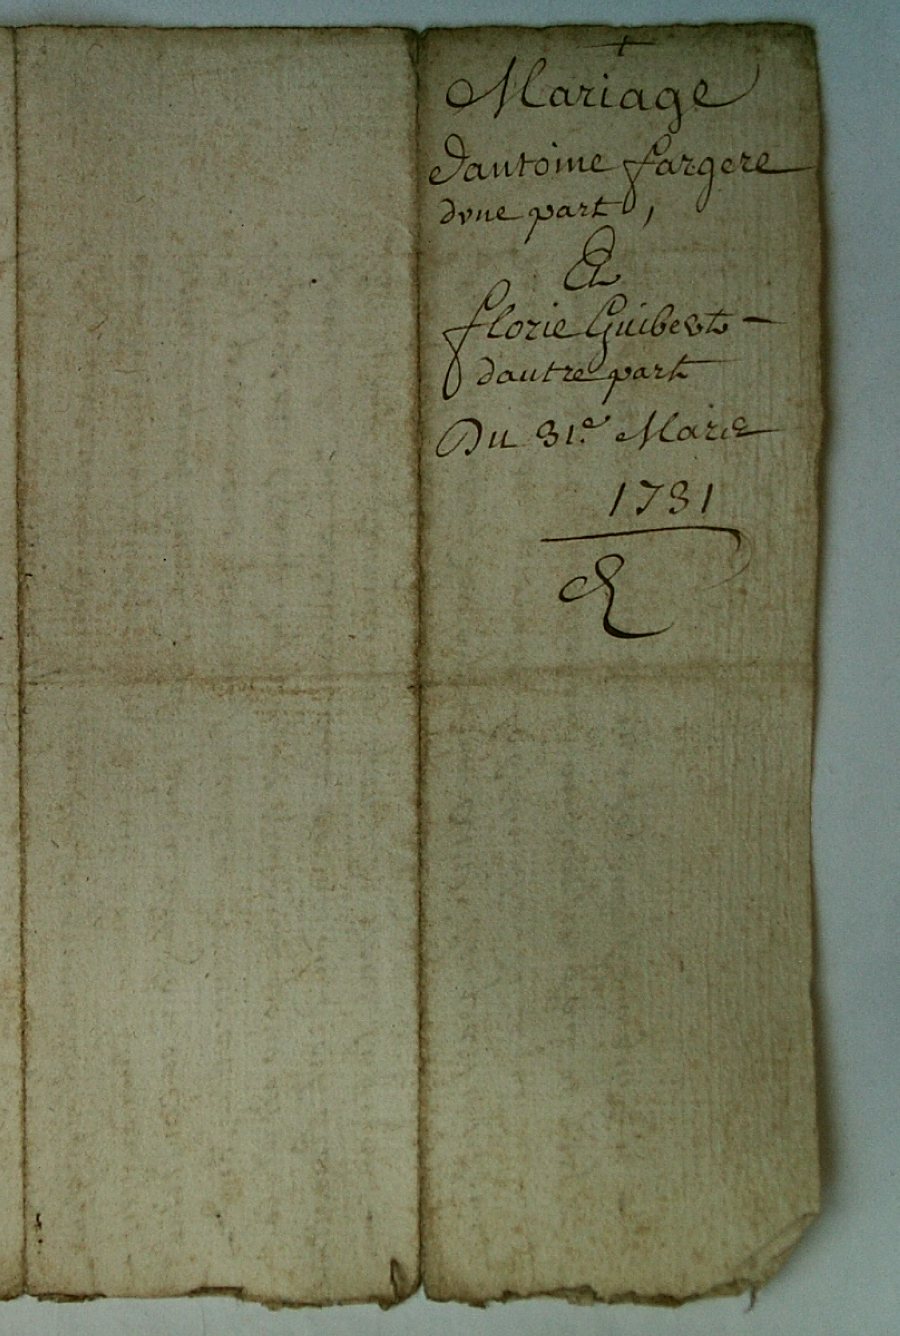 +
Mariage
Dantoine fargere
dvne part,
Et
florie Guibert -
dautre part
Du 31.e Mars
1731